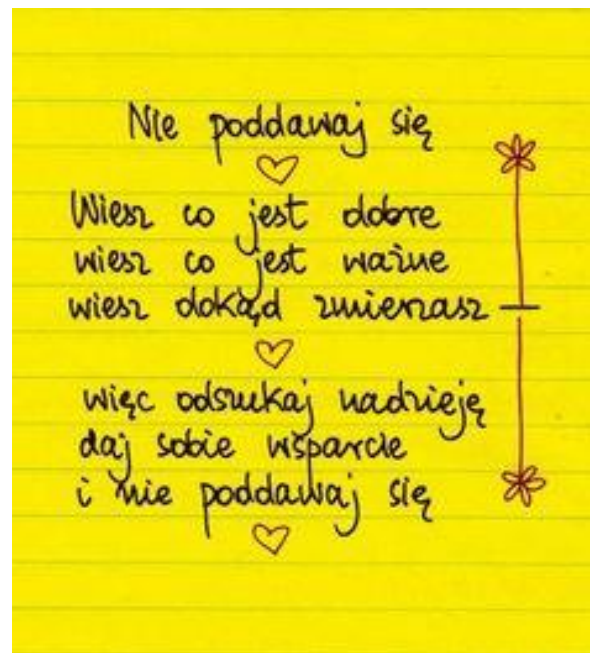 Nie poddawaj się
Wiesz co jest dobre
wiesz co jest ważne
wiesz dokąd zmierzasz —
więc odszukaj nadzieję
daj sobie wsparcie
i nie poddawaj się